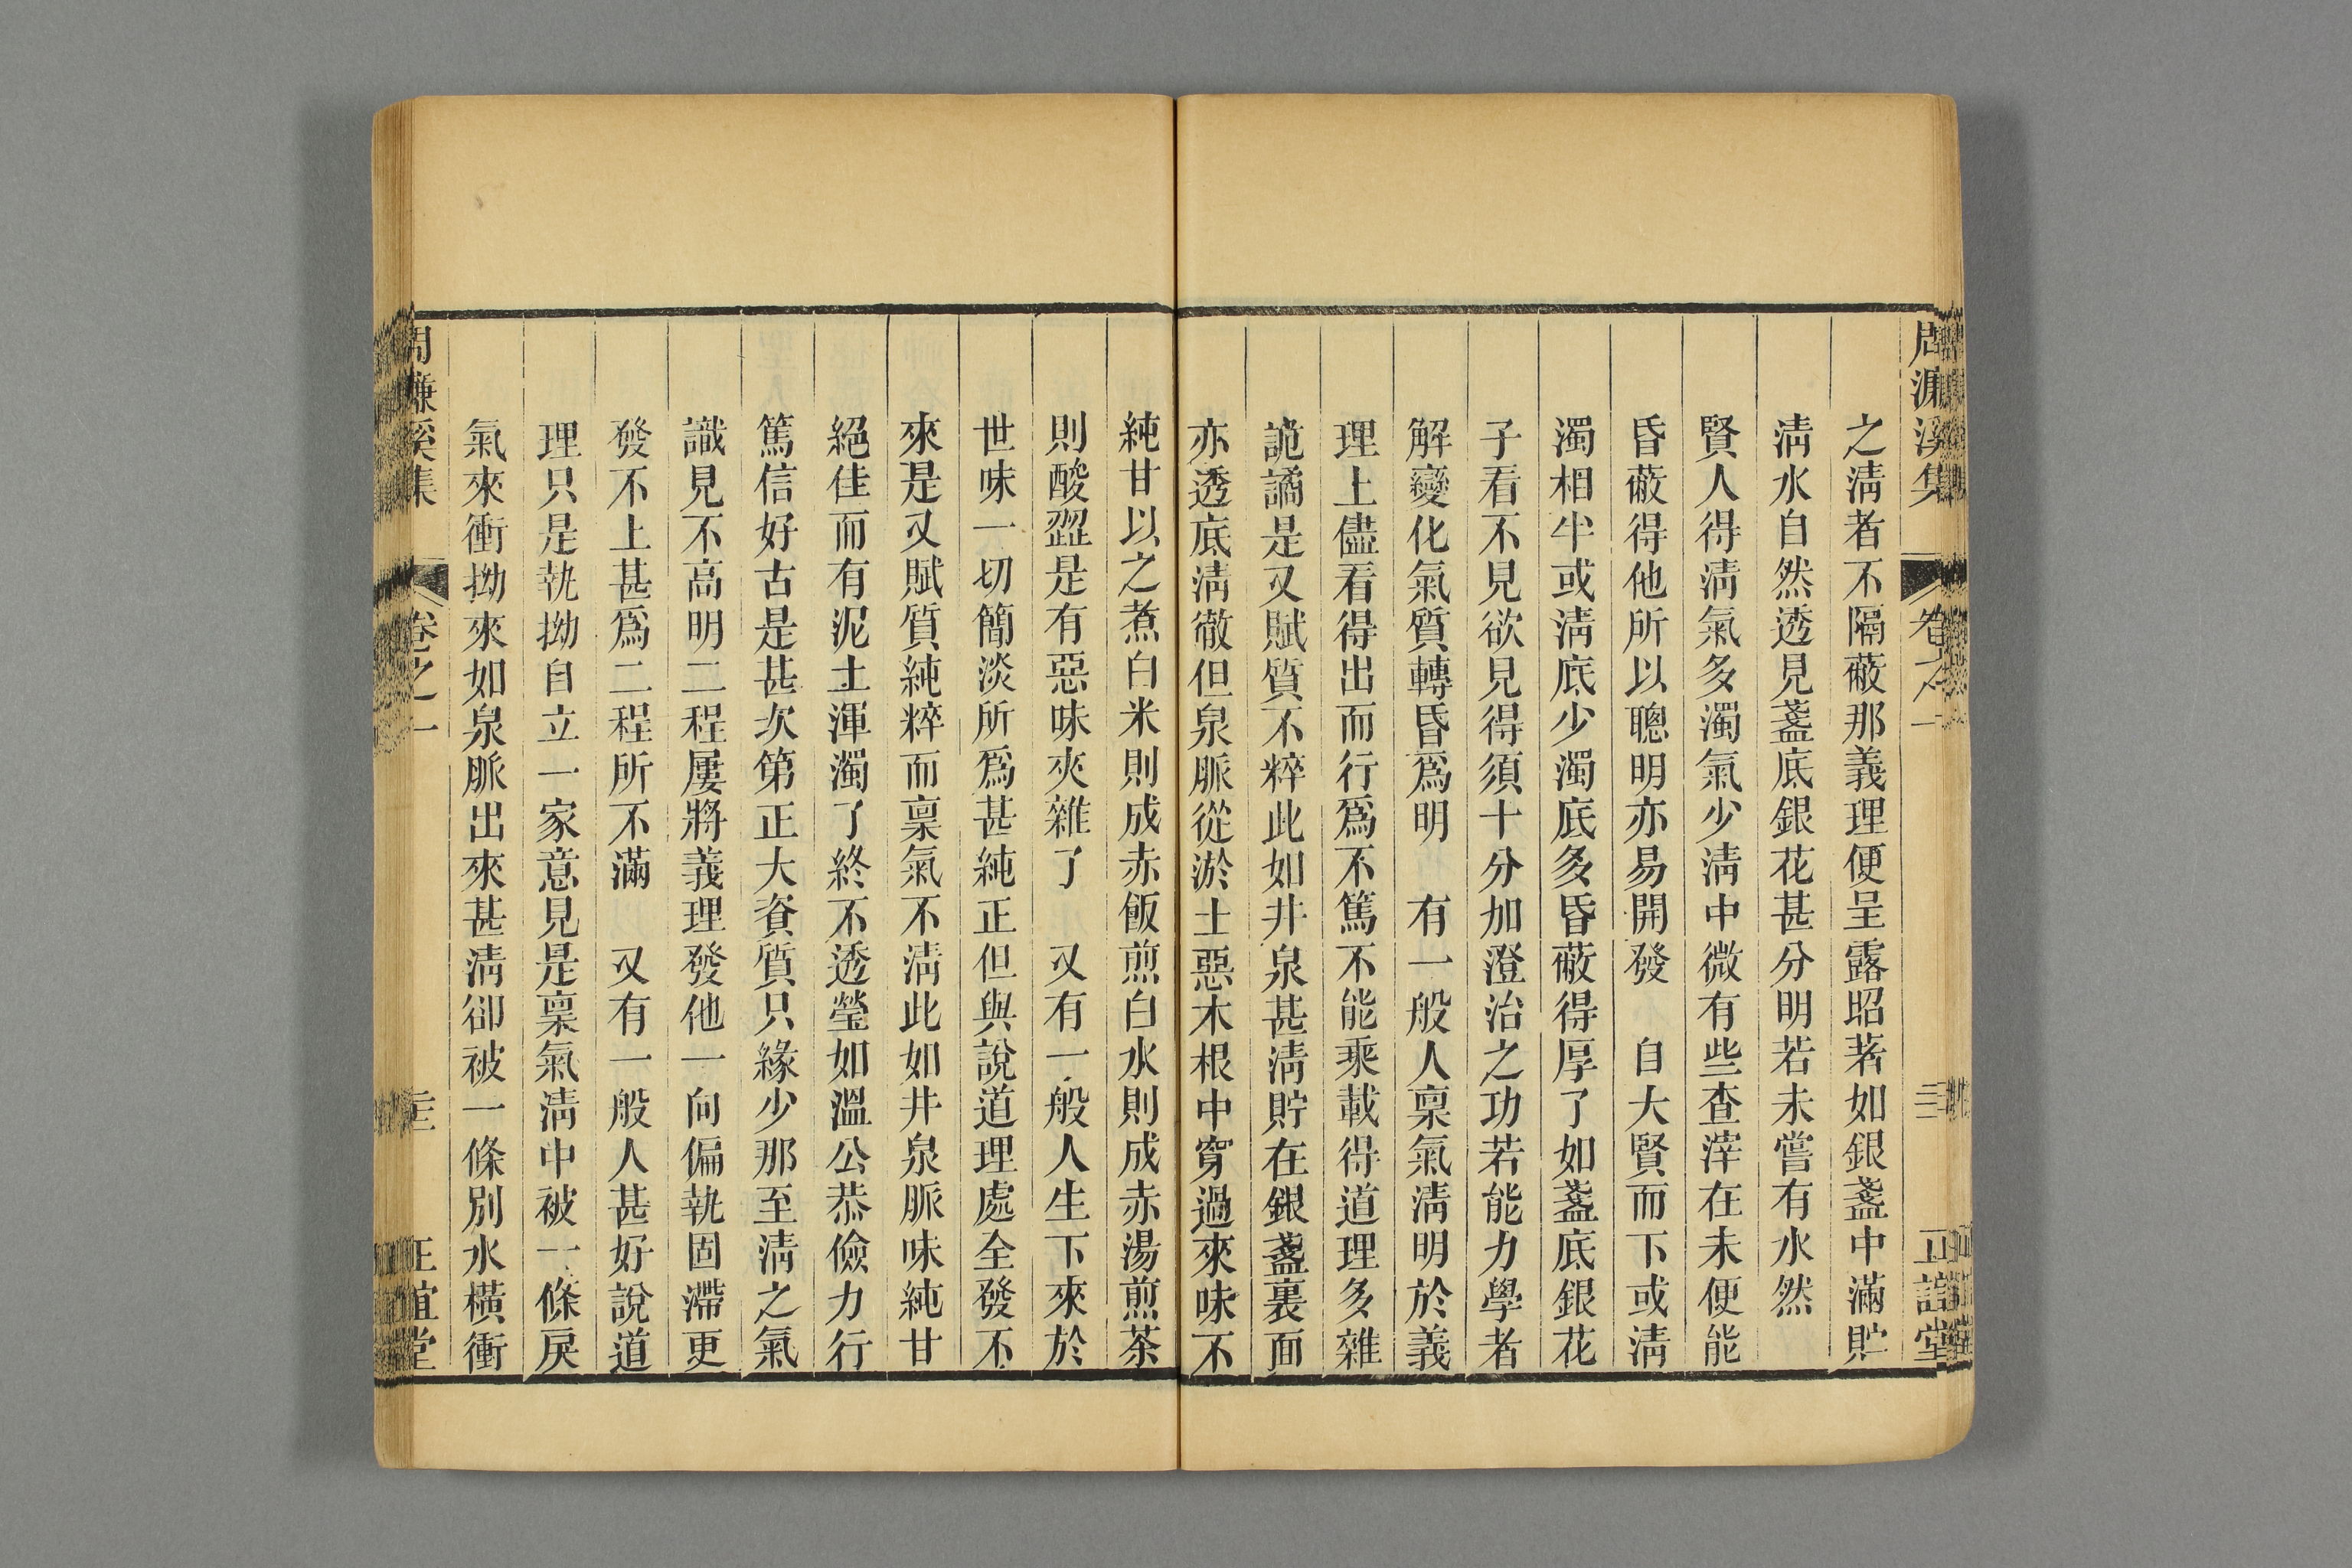 周濂溪集 卷之一 正誼堂
之淸者不隔蔽那義理便呈露昭著如銀盞中滿貯
淸水自然透見盞底銀花甚分明若未嘗有水然
賢人得淸氣多濁氣少淸中微有些查滓在未便能
昏蔽得他所以聰明亦易開發 自大賢而下或淸
濁相半或淸底少濁底多昏蔽得厚了如盞底銀花
子看不見欲見得須十分加澄治之功若能力學者
解變化氣質轉昏爲明 有一般人稟氣淸明於義
理上儘看得出而行爲不篤不能乘載得道理多雜
詭譎是又賦質不粹此如井泉甚淸貯在銀盞裏面
亦透底淸徹但泉脈從淤土惡木根中穿過來味不
純甘以之煮白米則成赤飯煎白水則成赤湯煎茶
則酸澀是有惡味夾雜了 又有一般人生下來於
世味一切簡淡所爲甚純正但與說道理處全發不
來是又賦質純粹而稟氣不淸此如井泉脈味純甘
絕佳而有泥土渾濁了終不透瑩如溫公恭儉力行
篤信好古是甚次第正大資質只緣少那至淸之氣
識見不高明二程屢將義理發他一向偏執固滯更
發不上甚爲二程所不滿 又有一般人甚好說道
理只是執拗自立一家意見是稟氣淸中被一條戾
氣來衝拗來如泉脈出來甚淸卻被一條別水橫衝
周濂溪集 卷之一 正誼堂